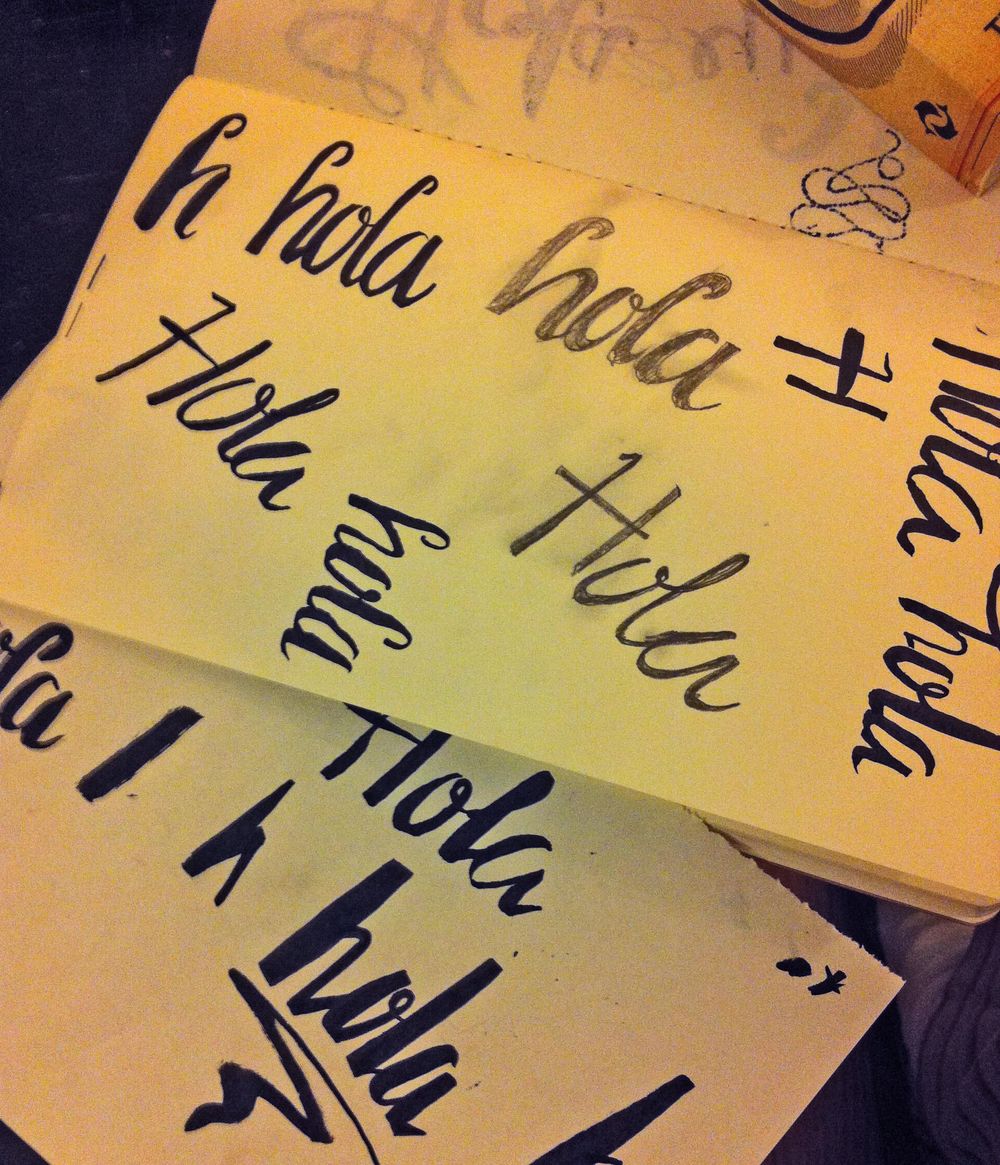 h hola hola H
Hola Hola
hola
Hola hola
ola l h Hola
hola